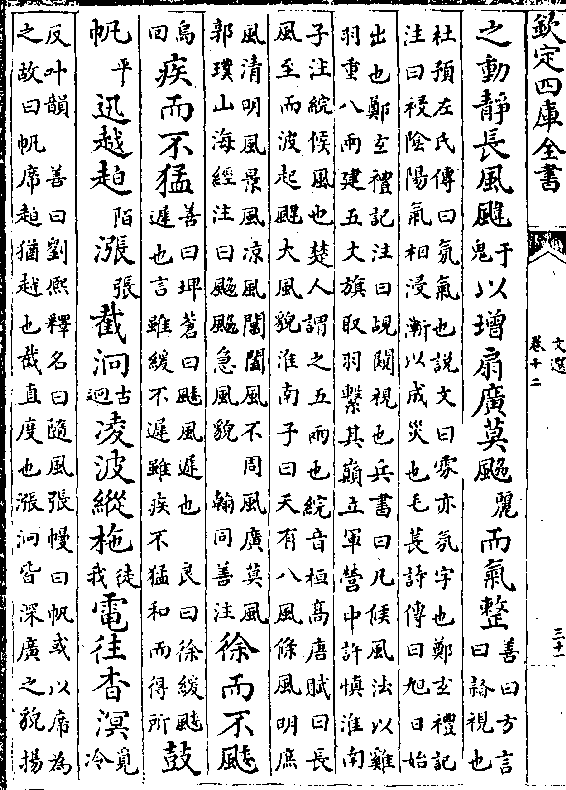 欽定四庫全書
文選
卷十二
三十一
之動靜長風䬑于鬼以增扇廣莫䬆麗而氣整善曰方言
曰䚕視也
杜預左氏傳曰氛氣也說文曰雰亦氛字也鄭玄禮記
注曰祲陰陽氣相浸漸以成災也毛萇詩傳曰旭日始
出也鄭玄禮記注曰覘闚視也兵書曰凡候風法以雞
羽重八兩建五丈旗取羽繫其巔立軍營中許慎淮南
子注綄候風也楚人謂之五兩也綄音桓高唐賦曰長
風至而波起䬑大風貌淮南子曰天有八風條風明庶
風清明風景風凉風閶闔風不周風廣莫風
郭璞山海經注曰䬆䬆急風貌 翰同善注
徐而不䬐
烏回疾而不猛善曰埤蒼曰䬐風遲也 良曰徐緩䬐
遲也言雖緩不遲雖疾不猛和而得所
鼓
帆平迅越䞟陌漲張截泂古迥凌波縱柂徒我電往杳溟覓冷
反叶韻 善曰劉熙釋名曰隨風張幔曰帆或以席為
之故曰帆席䞟猶越也截直度也漲泂皆深廣之貌揚